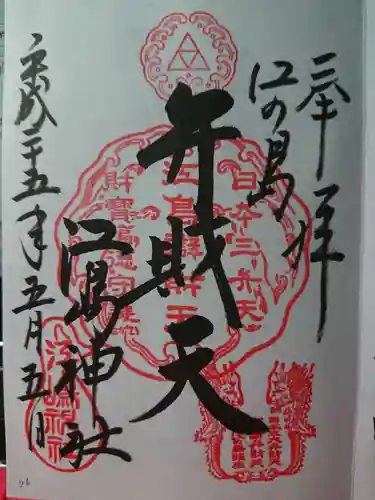 奉拝
江の島
弁財天
江島神社
平成二十五年五月五日
日本三弁天
江島辨財天
財寶福徳守護
江島神社
26